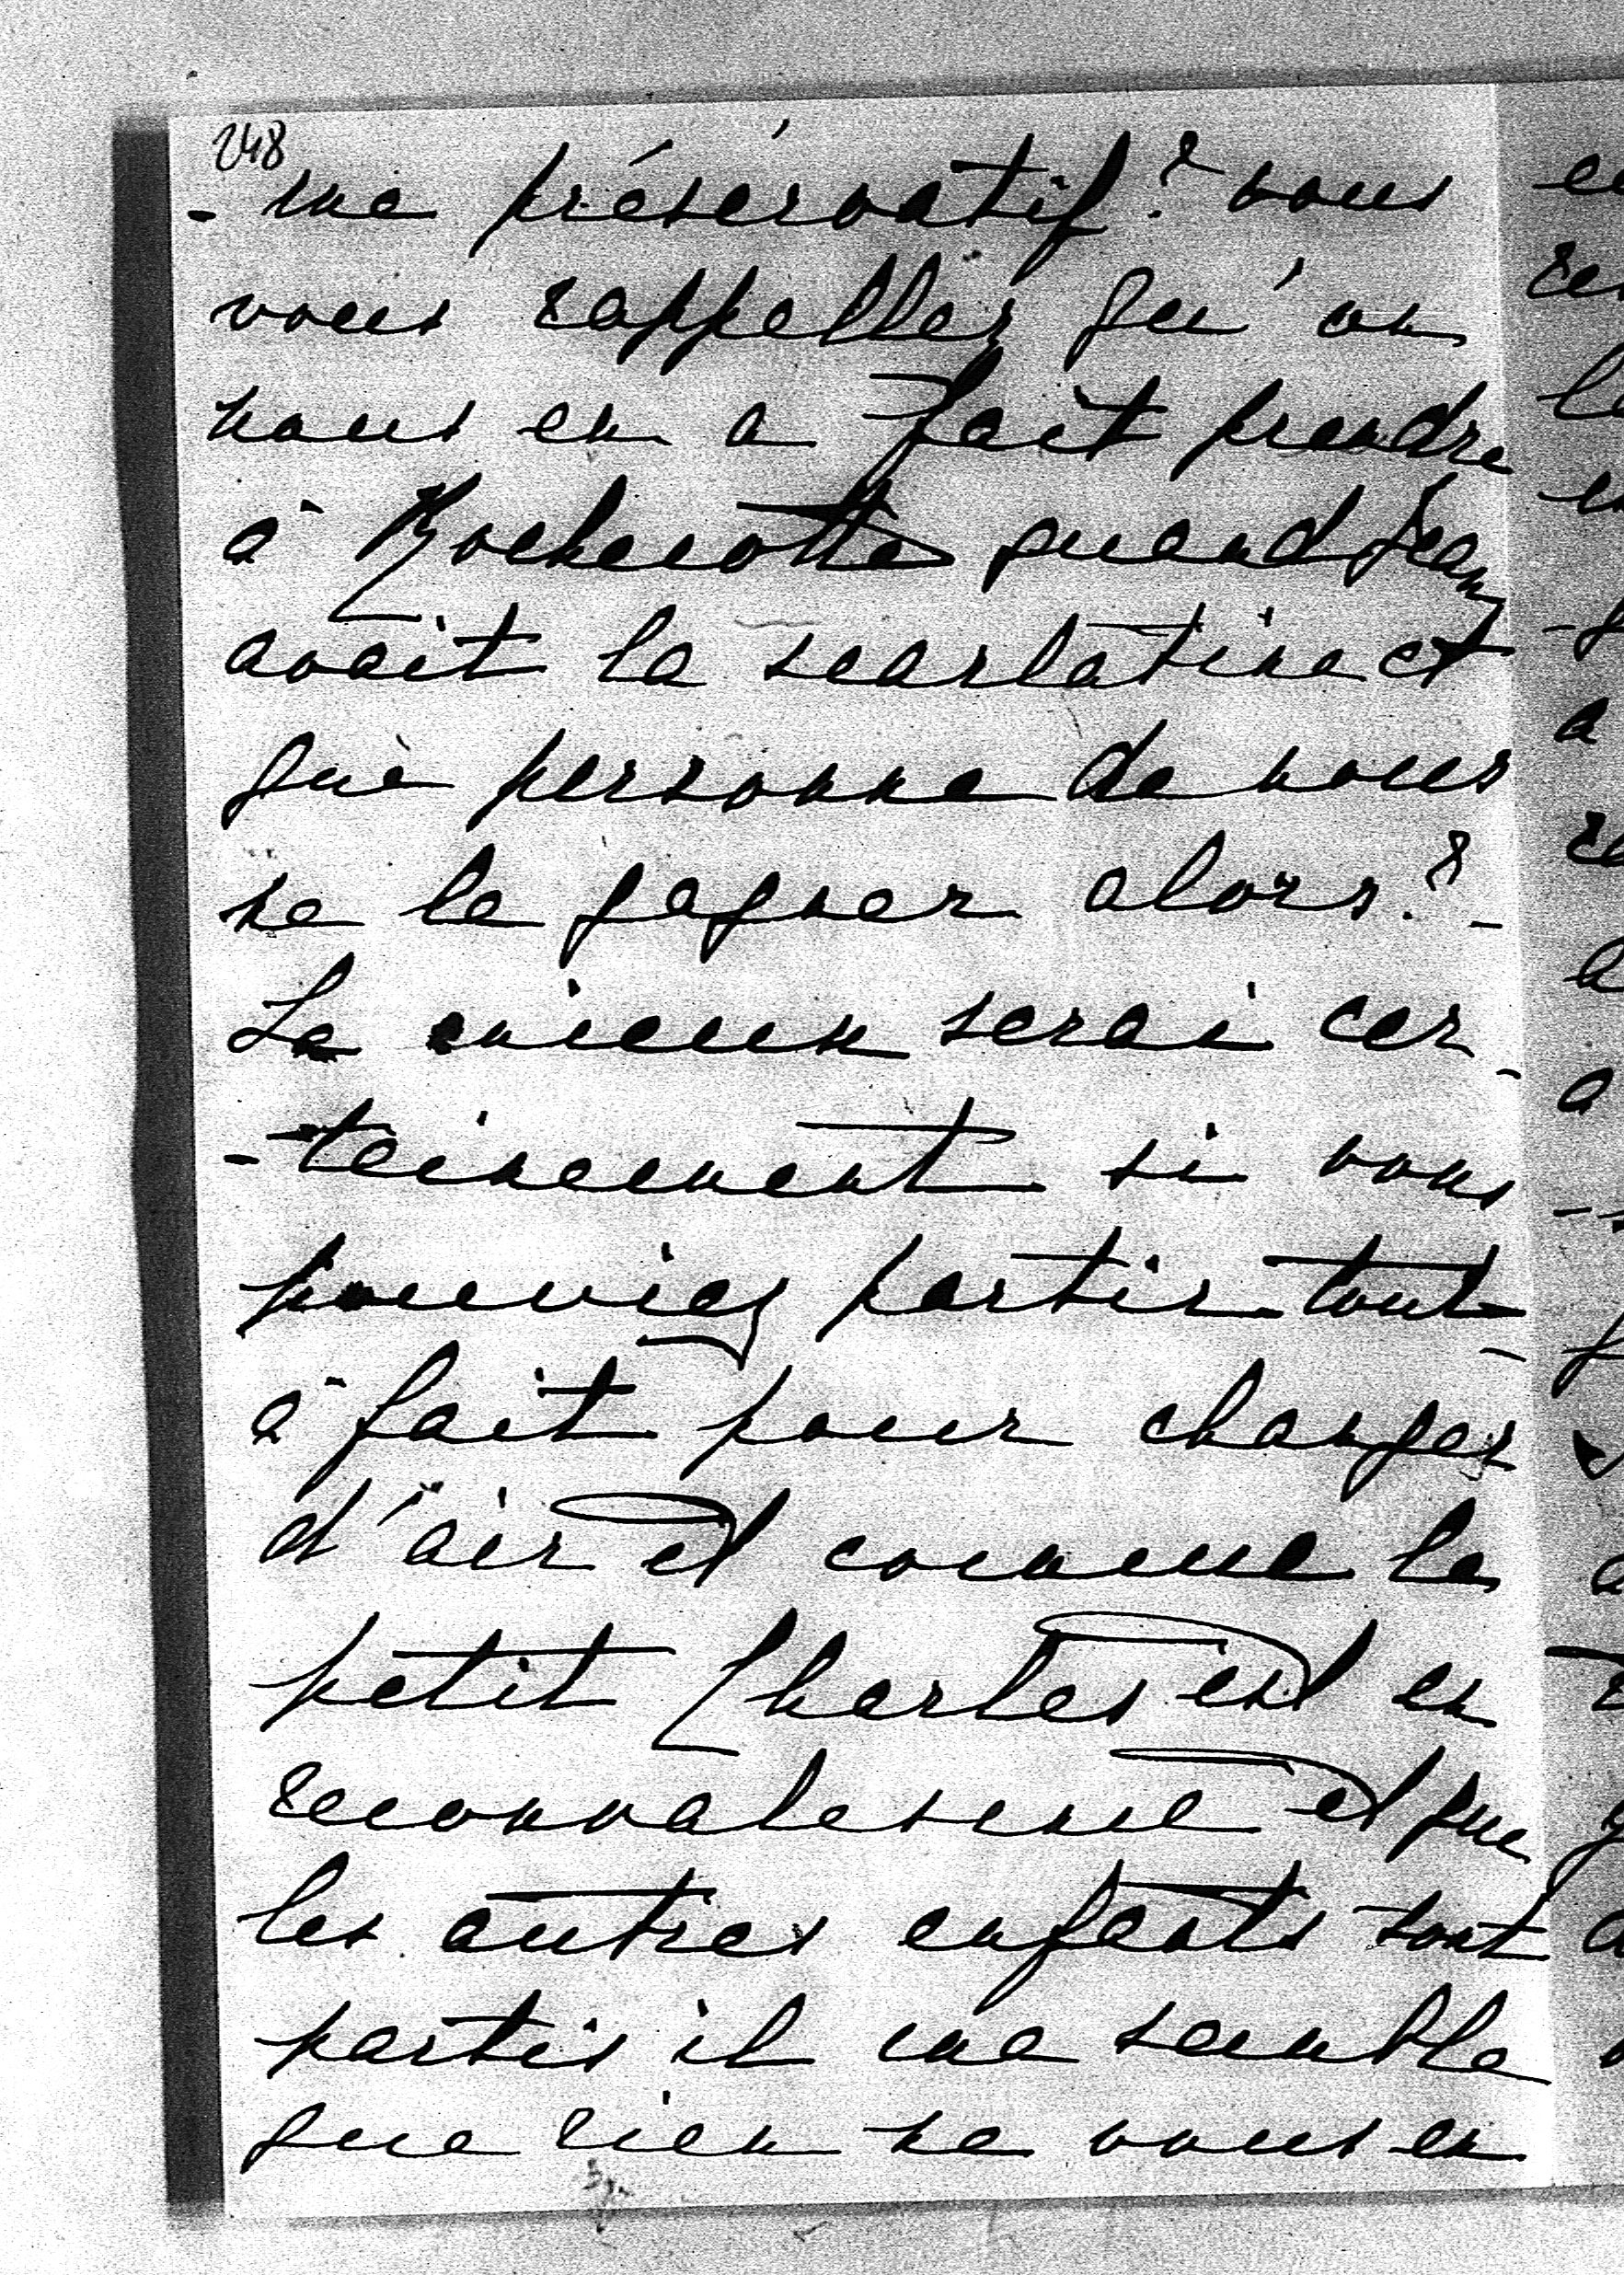 248
- me préservatif? vous
vous rappellez qu'on
nous en a fait prendre
à Rochecotte quand Jean
avait la scarlatine et
que personne de nous
ne la gagner alors? -
Le mieux serai cer-
- tainement si vous
pouviez partir tout-
à fait pour changer
d'air et comme le
petit Charles est en
reconvalescence et que
les autres enfants sont
partis il me semble
que rien ne vous en